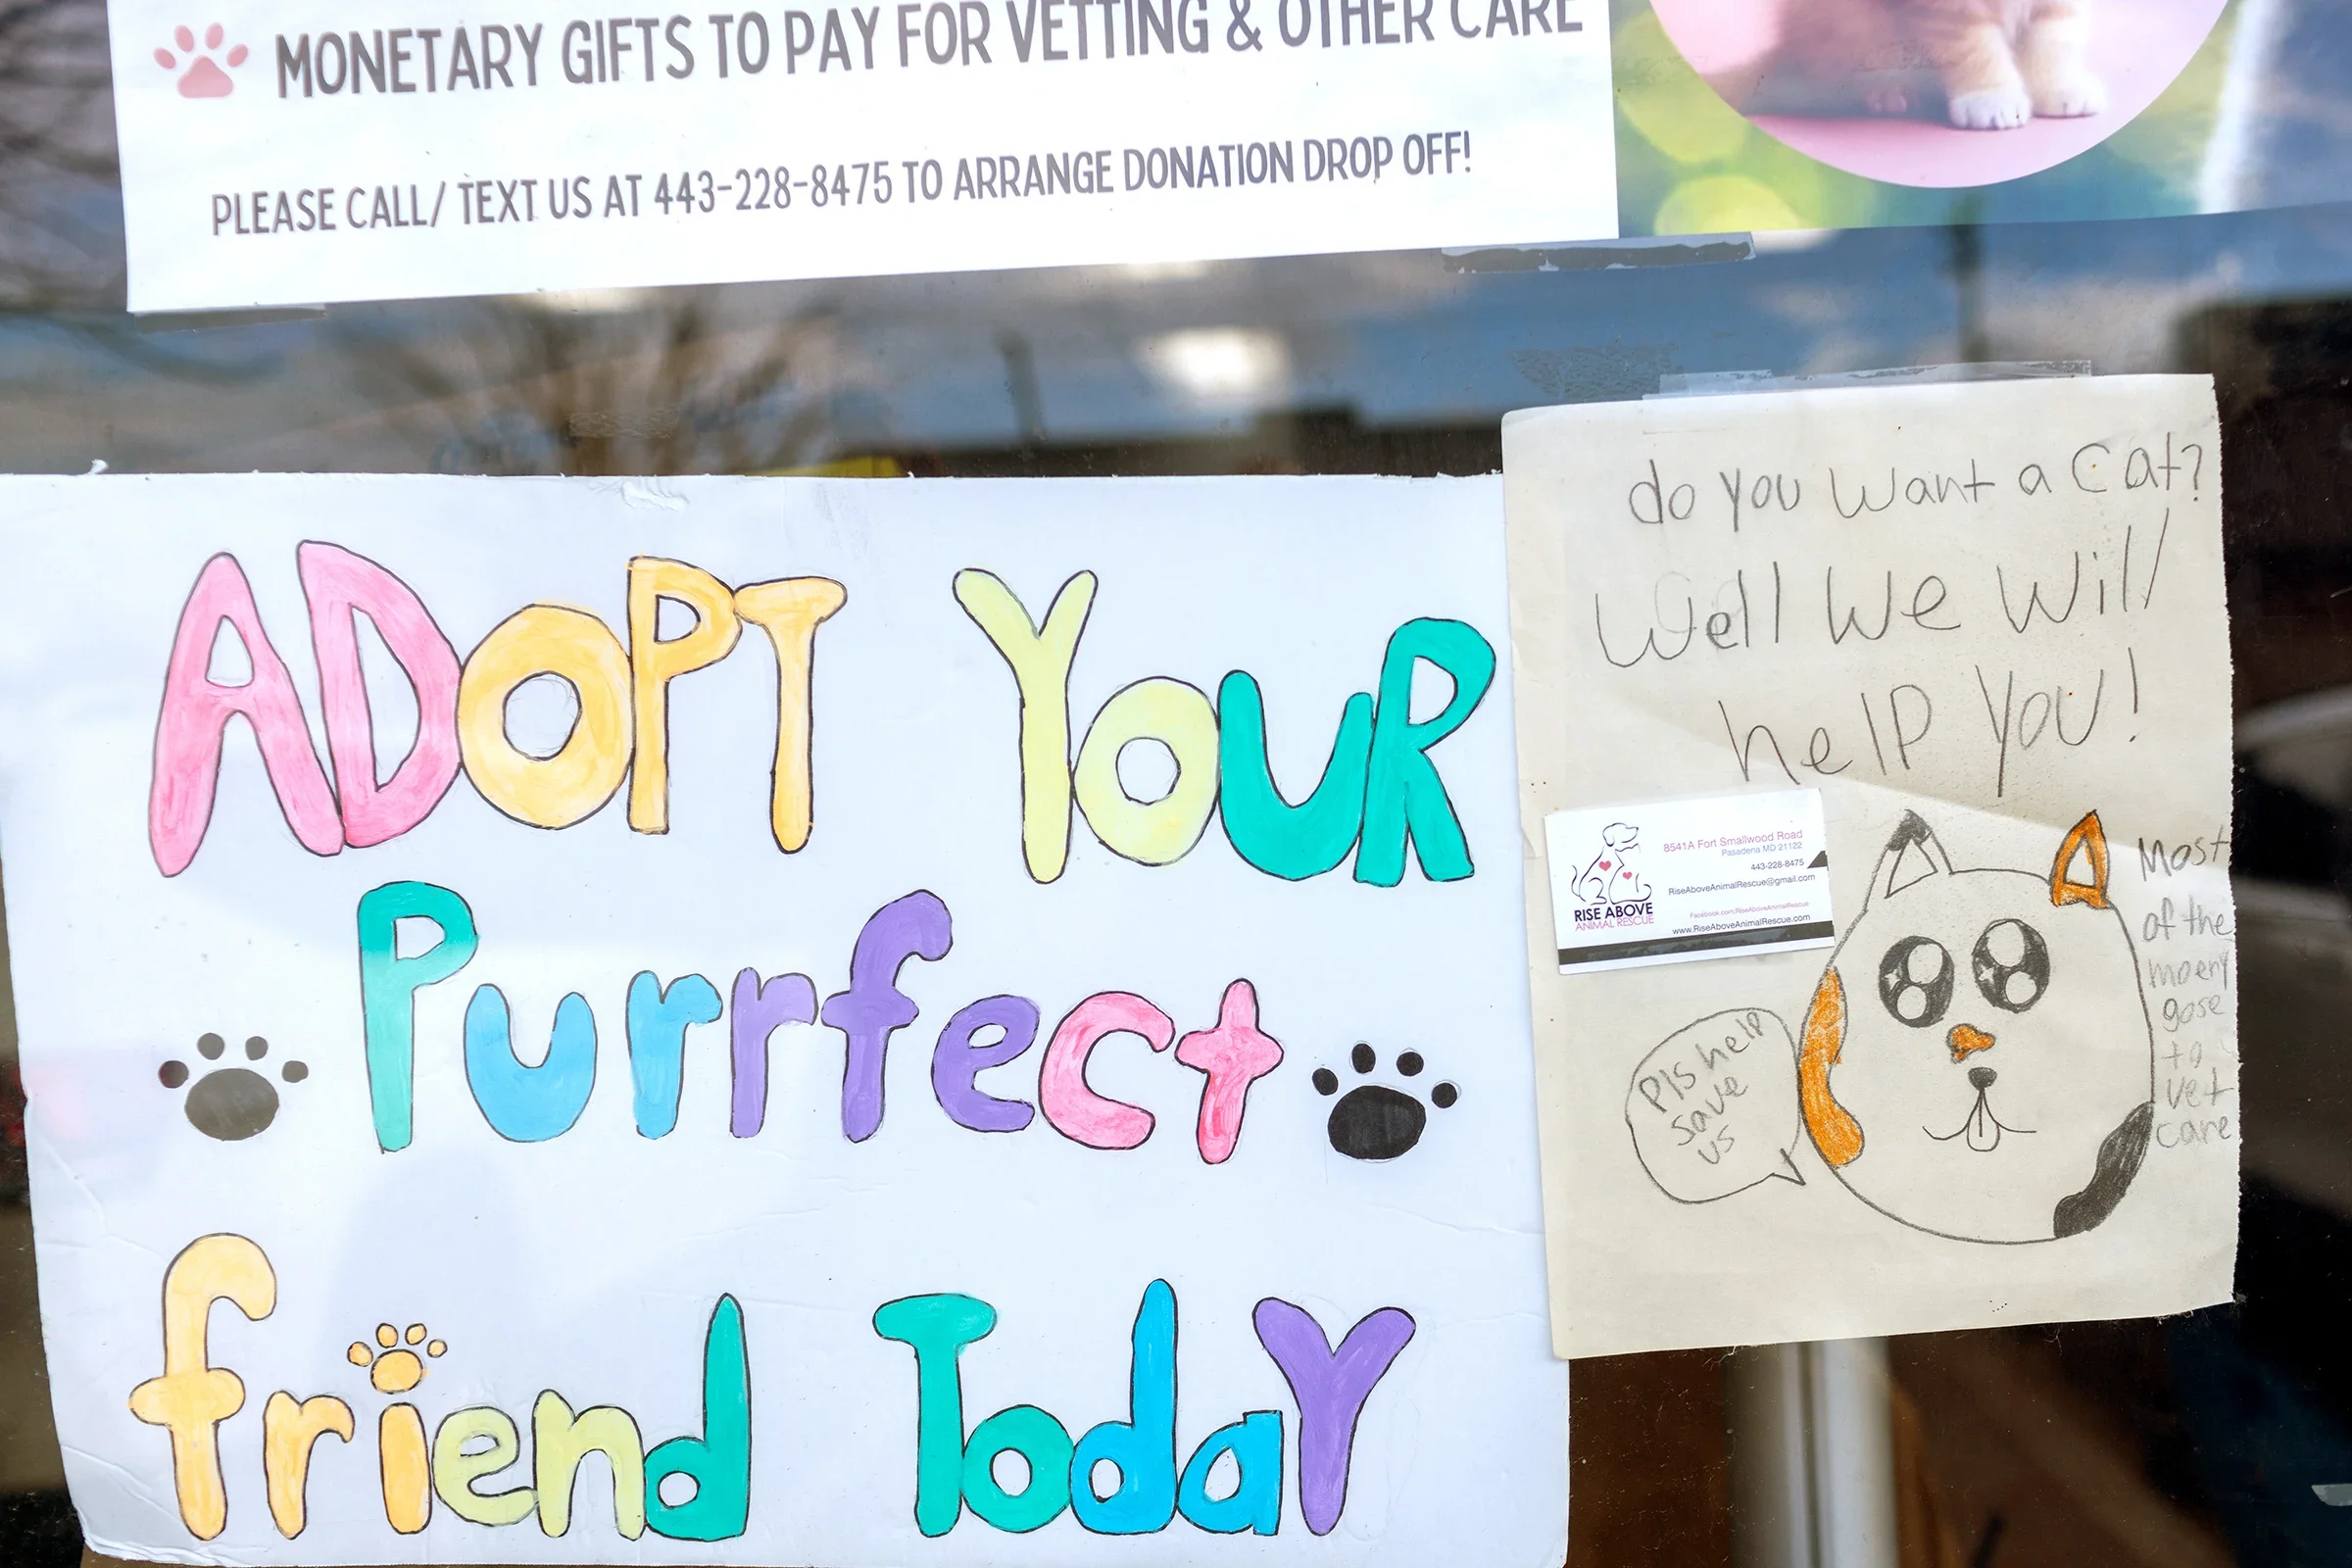 MONETARY GIFTS TO PAY FOR VETTING & OTHER CARE
PLEASE CALL/ TEXT US AT 443-228-8475 TO ARRANGE DONATION DROP OFF!
ADOPT YOUR
Purrfect
friend TodaY
do you want a Cat?
Well We Will
help You!
8541A Fort Smallwood Road
Pasadena MD 21122
443-228-8475
RiseAboveAnimalRescue@gmail.com
Facebook.com/RiseAboveAnimalRescue
www.RiseAboveAnimalRescue.com
RISE ABOVE
ANIMAL RESCUE
Pls help
save
us
Most
of the
moeny
gose
to
vet
care